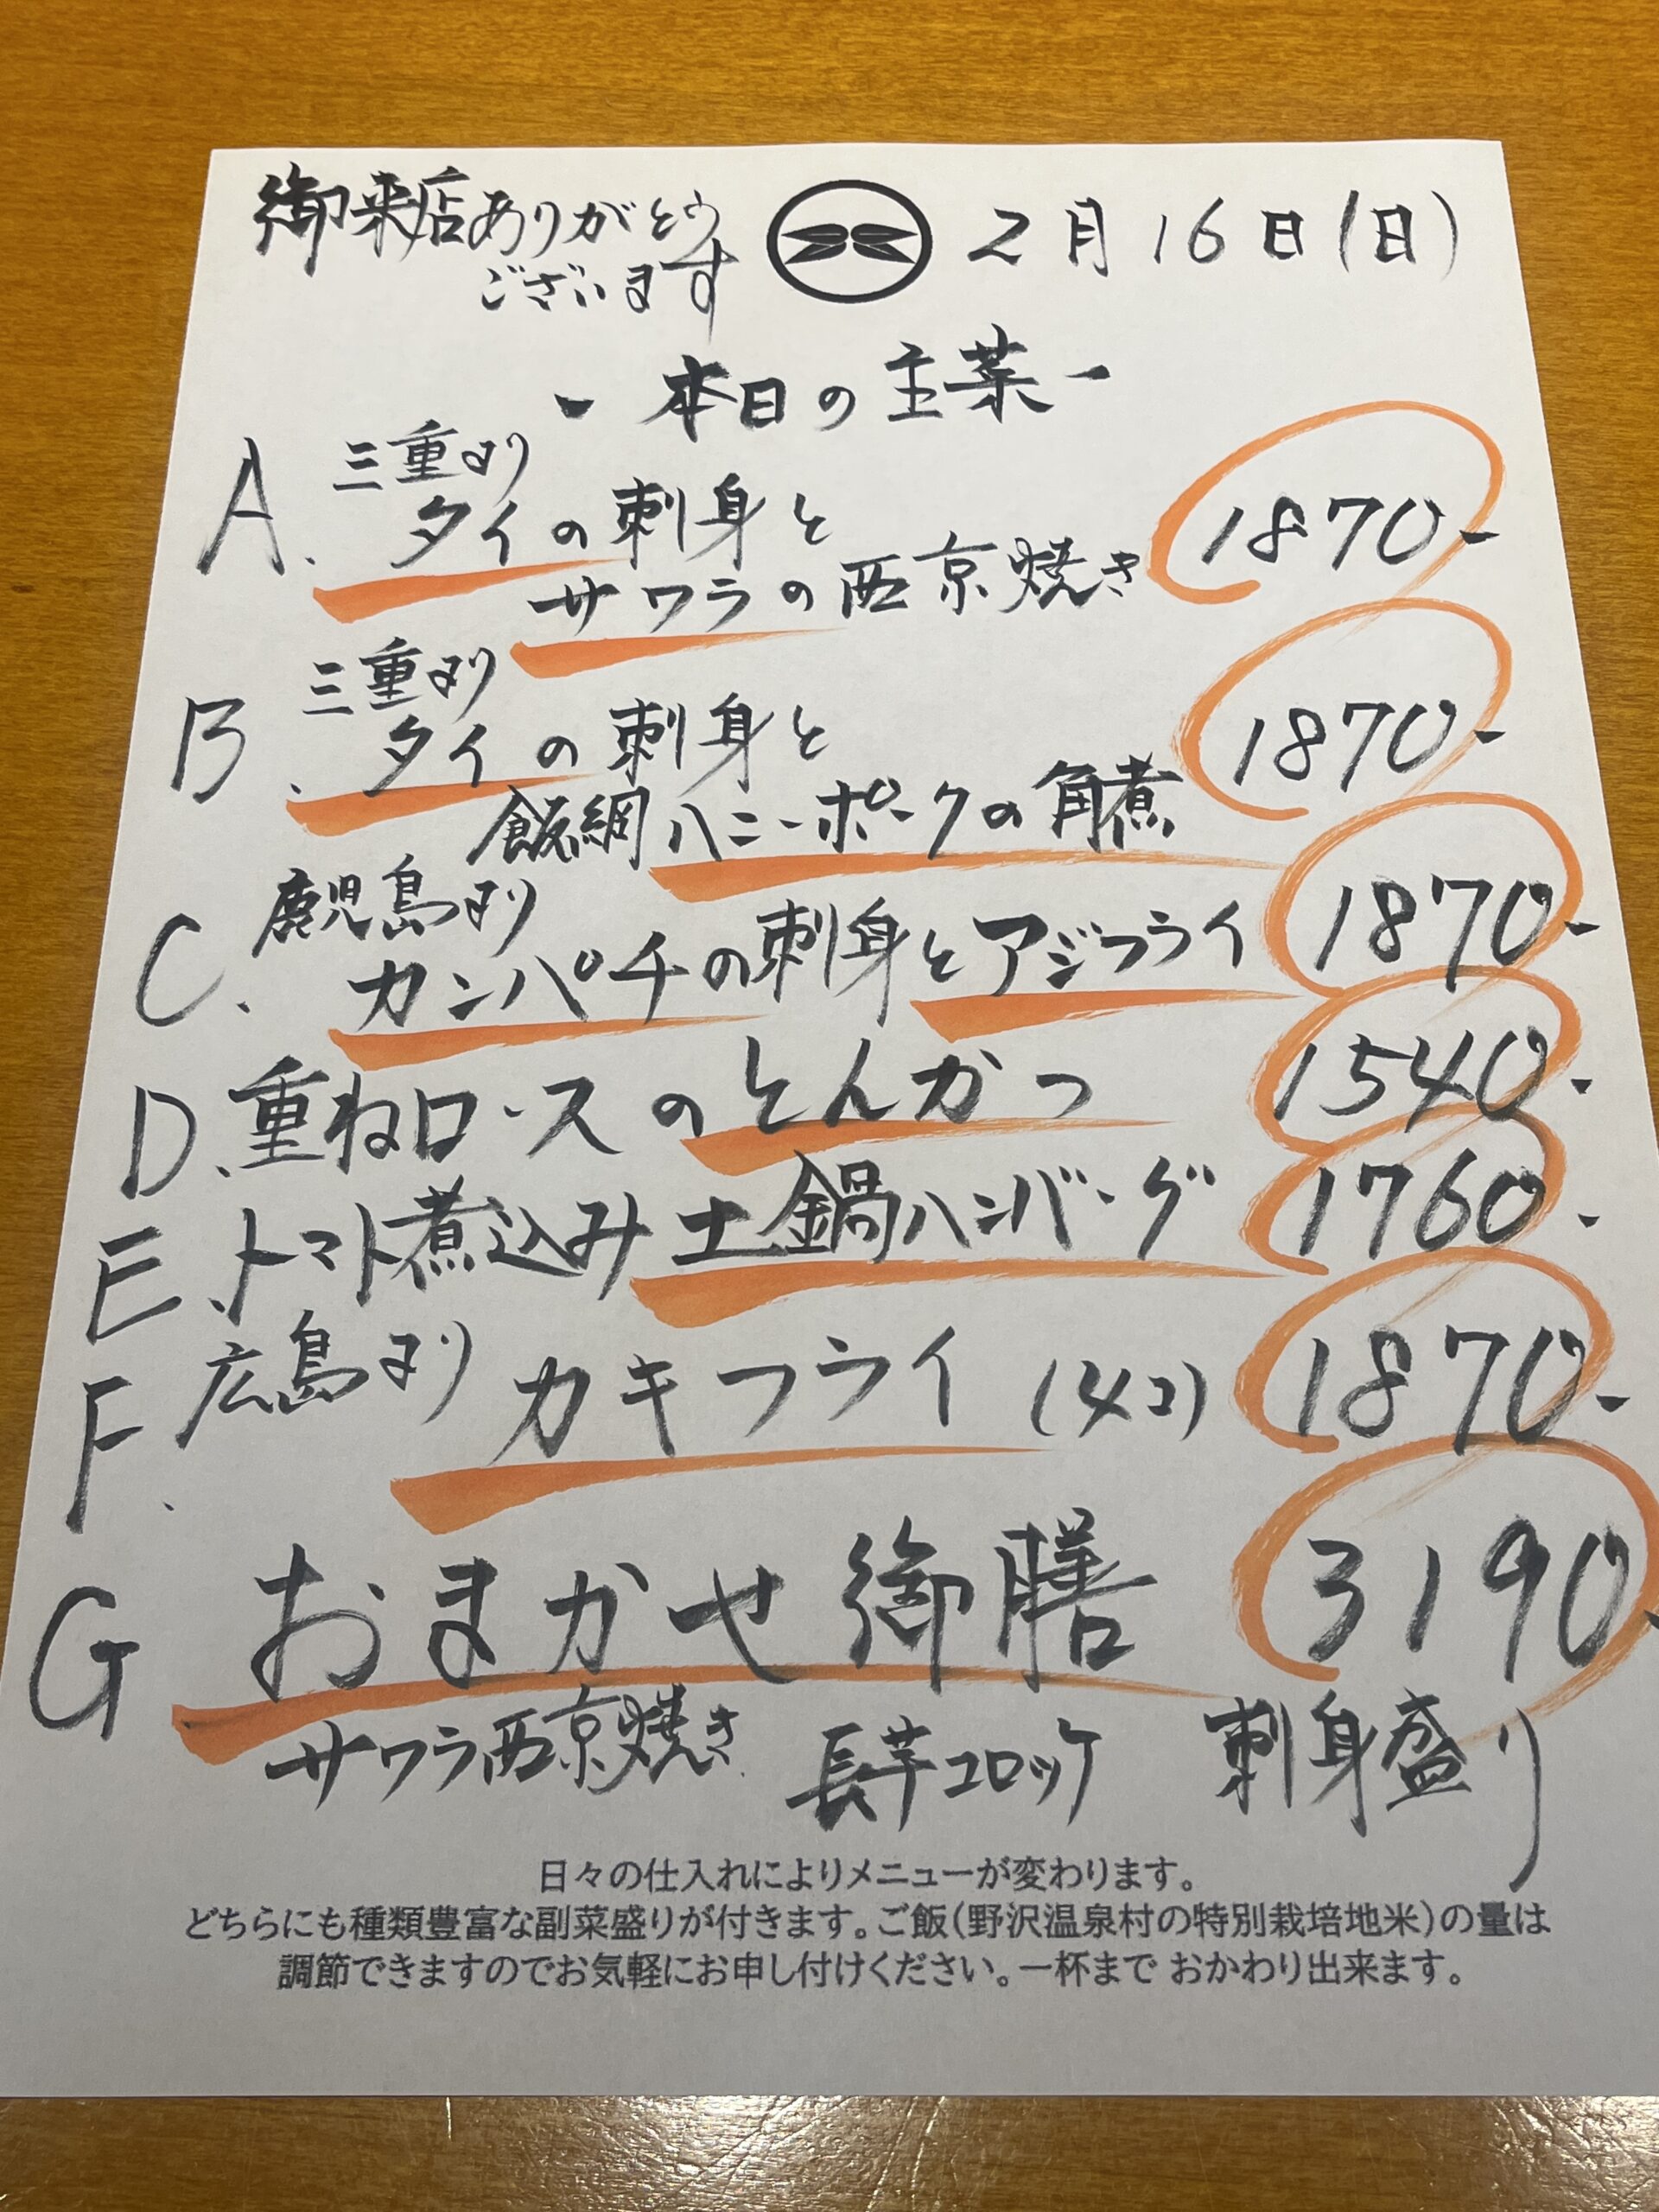 御来店ありがとう
ございます
2月16日(日)
- 本日の主菜 -
A. 三重より
タイの刺身と
サワラの西京焼き 1870-
B. 三重より
タイの刺身と
飯綱ハニーポークの角煮 1870-
C. 鹿児島より
カンパチの刺身とアジフライ 1870-
D. 重ねロースのとんかつ 1540-
E. トマト煮込み土鍋ハンバーグ 1760-
F. 広島より
カキフライ (4コ) 1870-
G おまかせ御膳 3190-
サワラ西京焼き 長芋コロッケ 刺身盛り
日々の仕入れによりメニューが変わります。
どちらにも種類豊富な副菜盛りが付きます。ご飯(野沢温泉村の特別栽培地米)の量は
調節できますのでお気軽にお申し付けください。一杯まで おかわり出来ます。